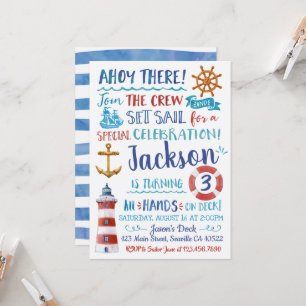 AHOY THERE!
Join THE CREW
AND
SET SAIL for a
SPECIAL CELEBRATION!
Jackson
IS TURNING 3
All HANDS ON DECK!
SATURDAY, AUGUST 16 AT 2:00PM
Jason's Dock
123 Main Street, Seaville CA 10522
RSVP: Sailor Jane at 123.456.7890